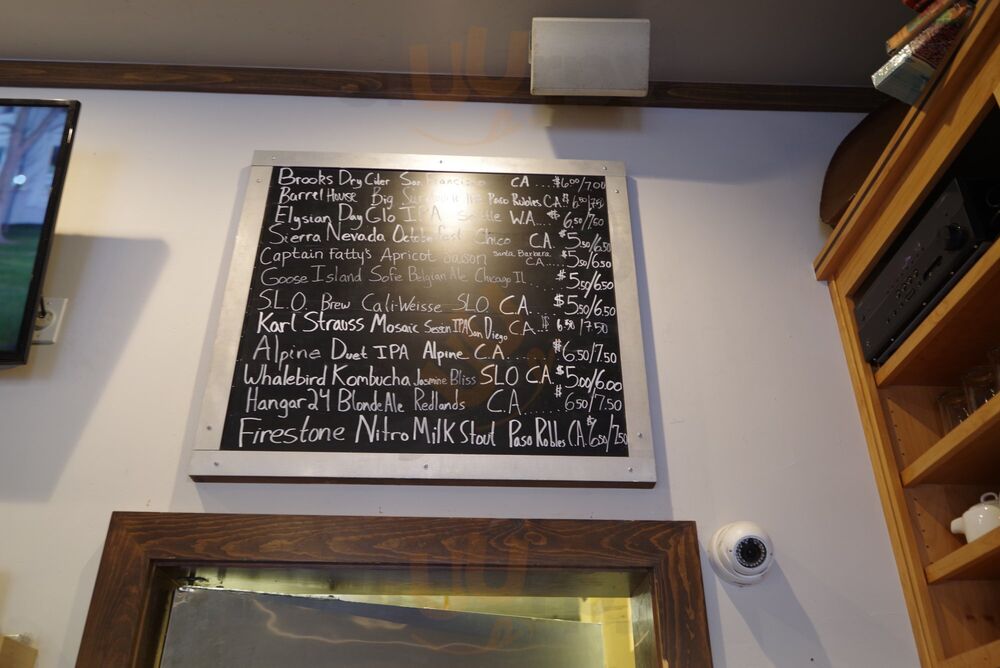 Brooks Dry Cider San Francisco CA....$6.00/7.00
Barrel House Big Sur Paso Robles C.A. $6.50/7.50
Elysian Day Glo IPA Seattle W.A... $6.50/7.50
Sierra Nevada Octoberfest Chico C.A. $5.50/6.50
Captain Fatty's Apricot Saison Santa Barbara C.A..... $5.50/6.50
Goose Island Sofie Belgian Ale Chicago Il $5.50/6.50
S.L.O. Brew Cali-Weisse S.L.O. C.A. $5.50/6.50
Karl Strauss Mosaic Session IPA San Diego C.A. $6.50/7.50
Alpine Duet IPA Alpine C.A....... $6.50/7.50
Whalebird Kombucha Jasmine Bliss SLO C.A. $5.00/6.00
Hangar 24 Blonde Ale Redlands C.A. ...... $6.50/7.50
Firestone Nitro Milk Stout Paso Robles C.A. $6.50/7.50